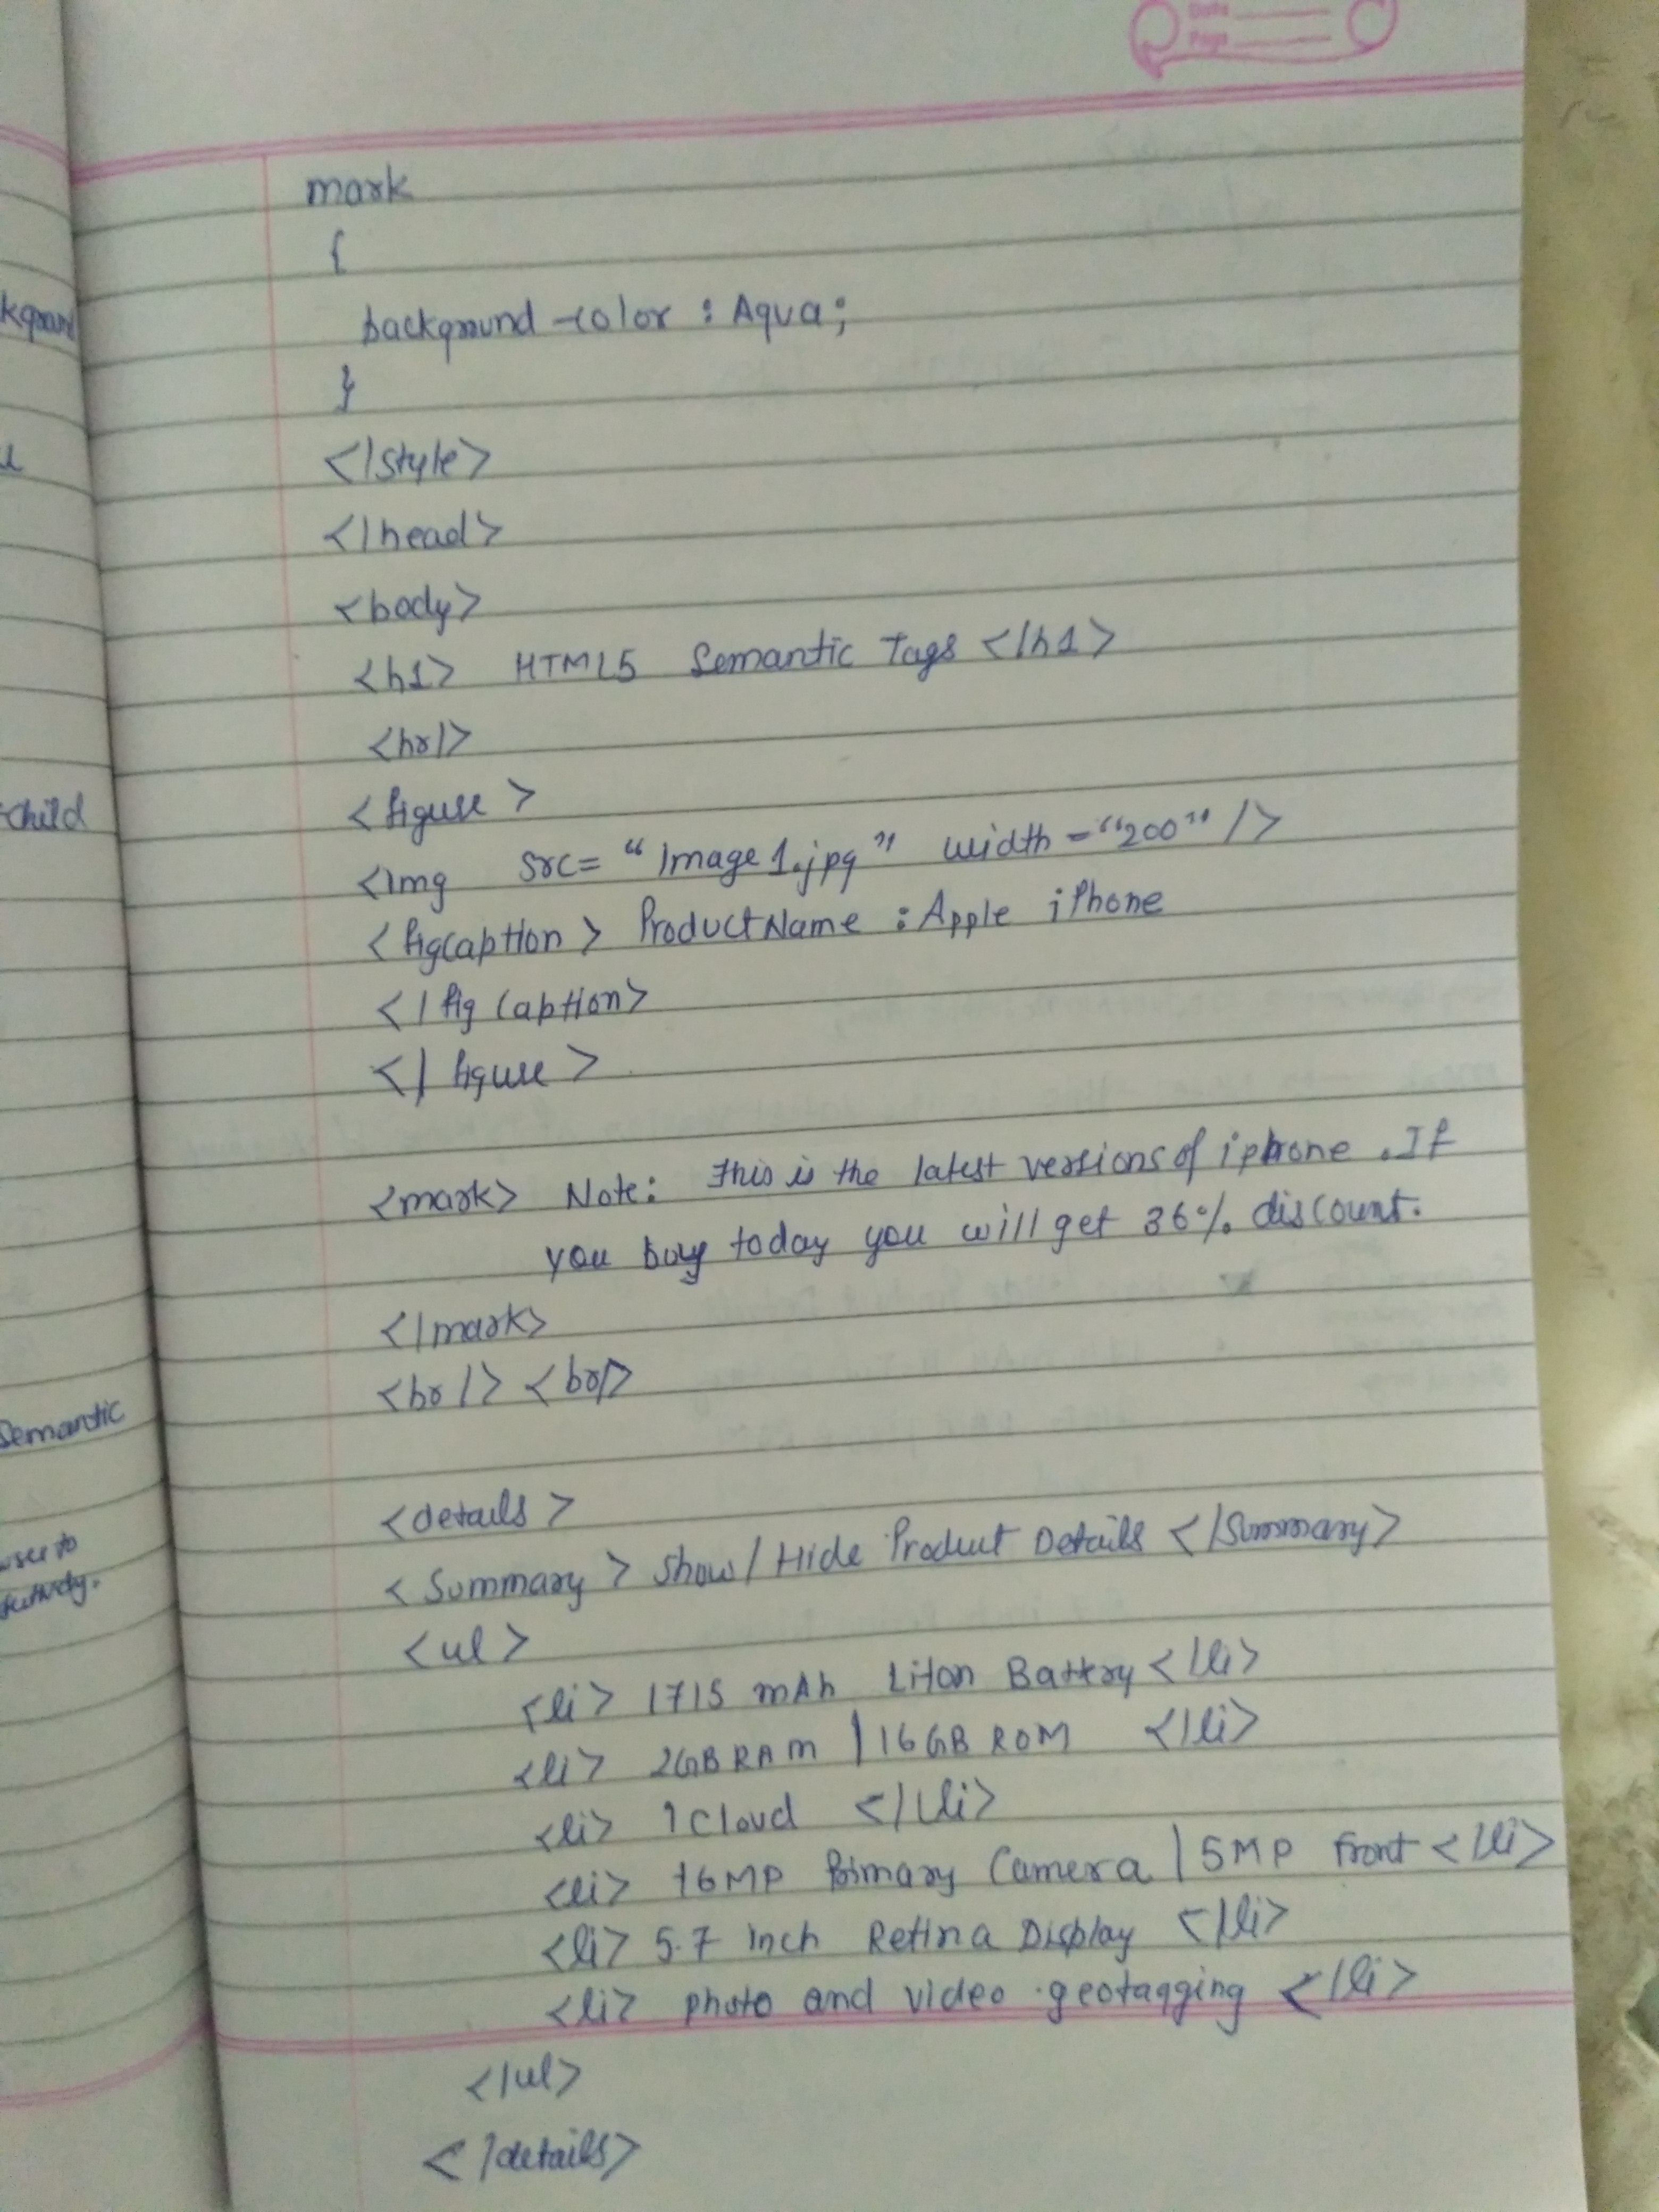 Date
Page
mark
{
background-color : Aqua;
}
</style>
</head>
<body>
<h1> HTML5 Semantic Tags </h1>
<hr/>
<figure>
<img src= "Image1.jpg" width="200" />
<figcaption> ProductName : Apple iPhone
</figcaption>
</figure>
<mark> Note: This is the latest versions of iphone . If
you buy today you will get 36% discount.
</mark>
<br/> <br/>
<details>
<Summary> Show/Hide Product Details </Summary>
<ul>
<li> 1715 mAh LiIon Battery </li>
<li> 2GB RAM | 16GB ROM </li>
<li> iCloud </li>
<li> 16MP Primary Camera | 5MP Front </li>
<li> 5.7 inch Retina Display </li>
<li> photo and video geotagging </li>
</ul>
</details>
child
Semantic
user to